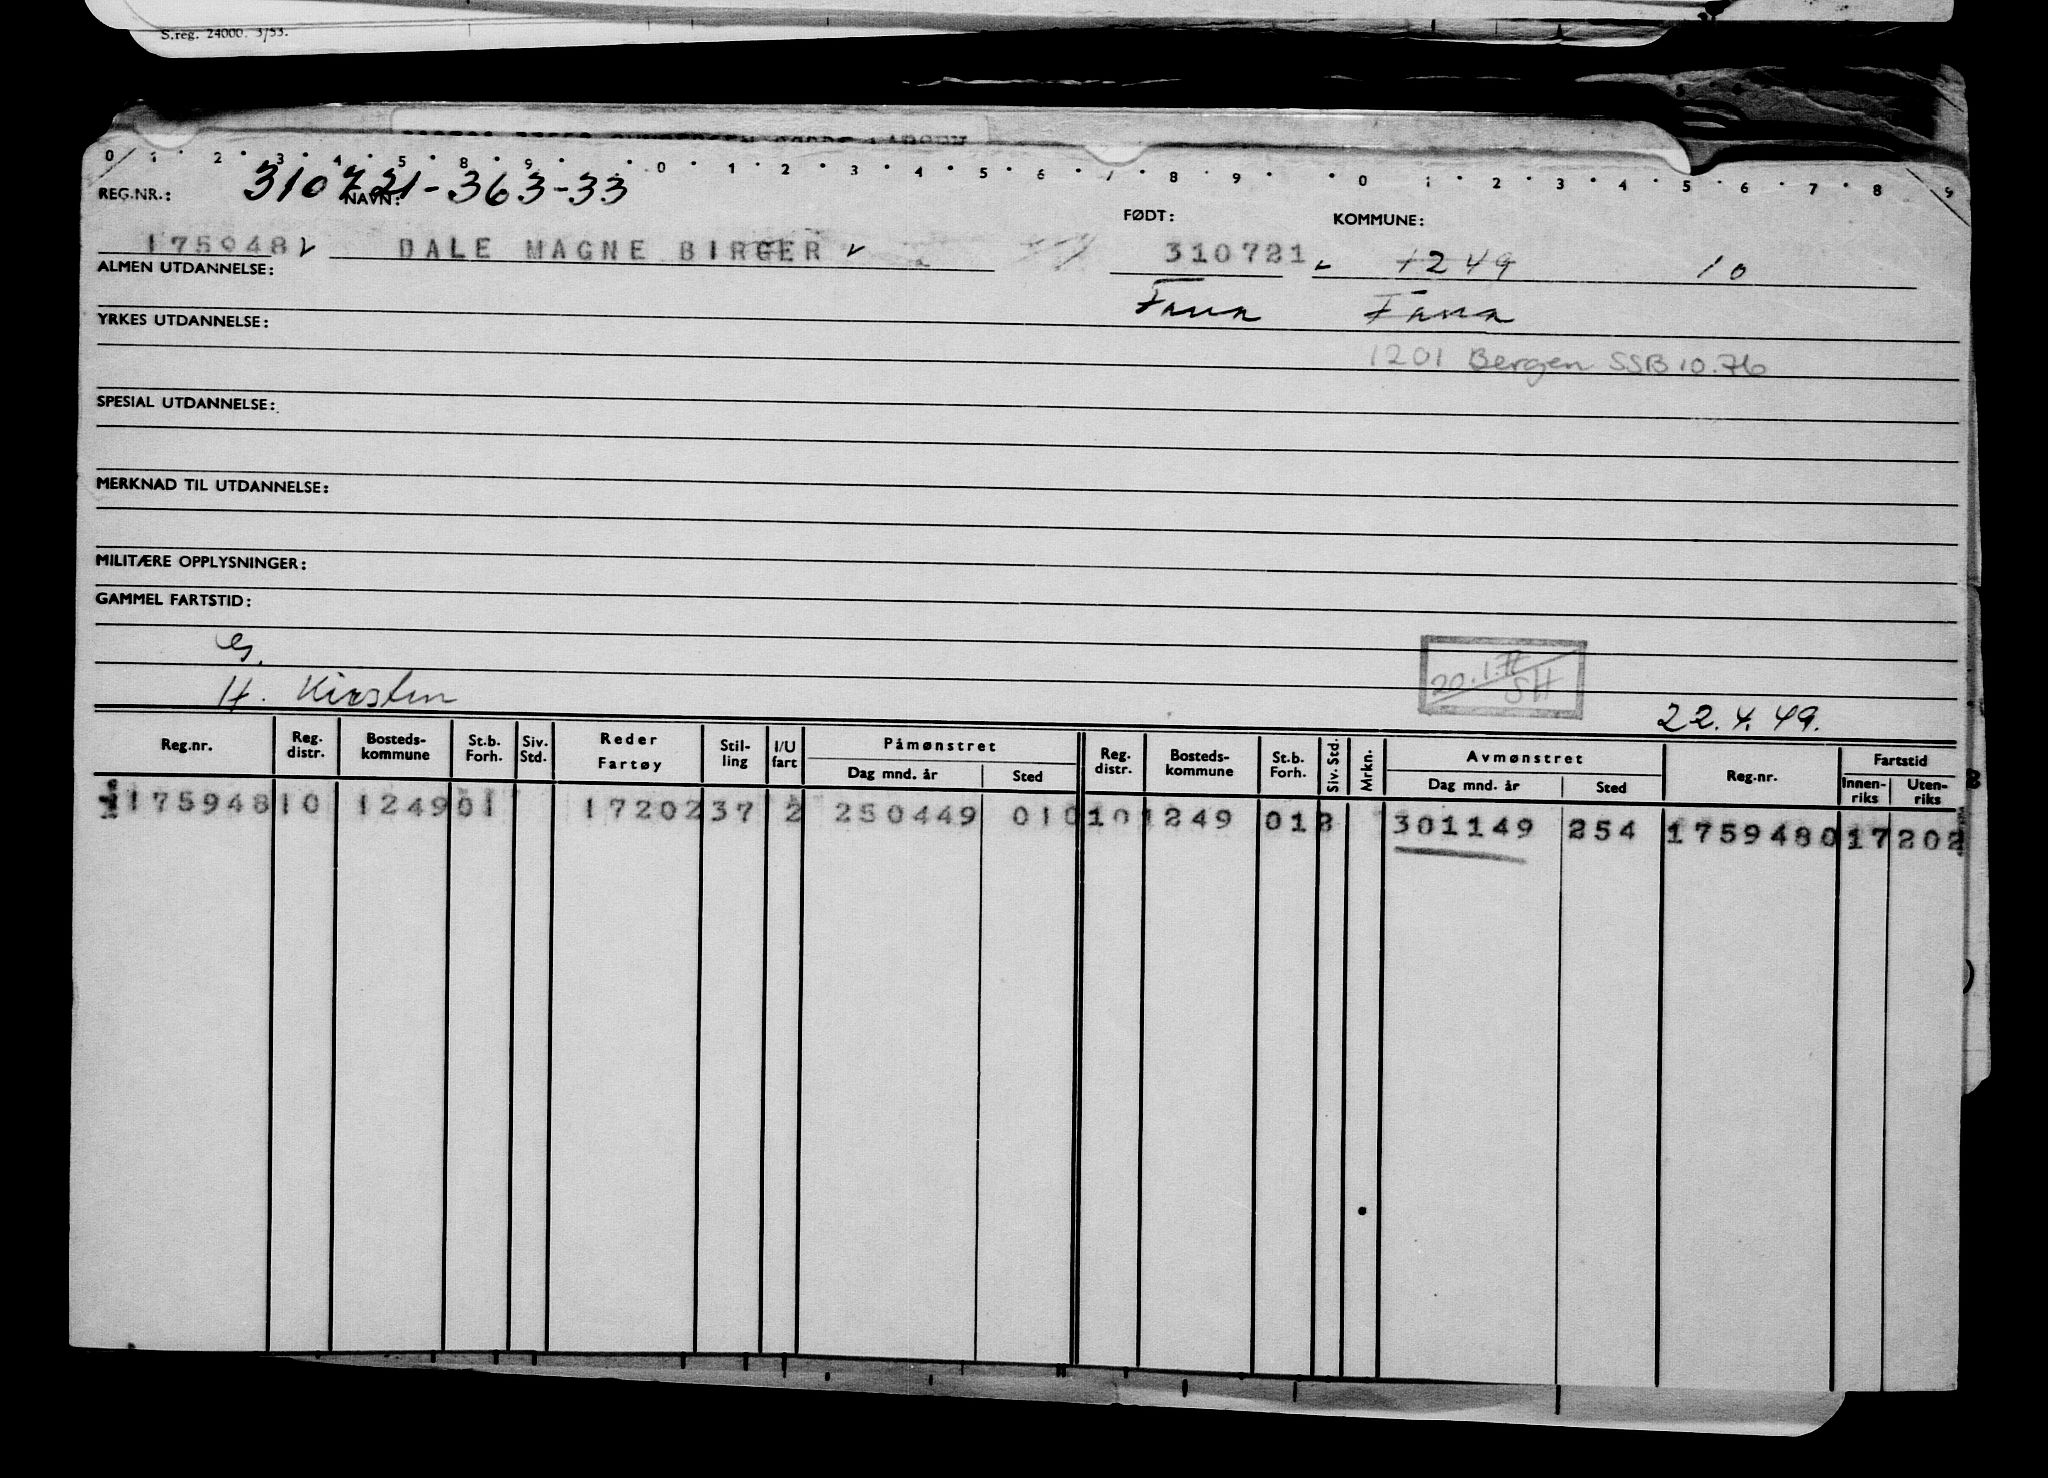 S.reg. 24000. 3/53.
0 1 2 3 4 5 8 9 0 1 2 3 4 5 6 7 8 9 0 1 2 3 4 5 6 7 8 9
310721-363-33
REG.NR.: NAVN: FØDT: KOMMUNE:
175948 DALE MAGNE BIRGER 310721 1249 10
ALMEN UTDANNELSE:
Fana Fana
YRKES UTDANNELSE:
1201 Bergen SSB 10.76
SPESIAL UTDANNELSE:
MERKNAD TIL UTDANNELSE:
MILITÆRE OPPLYSNINGER:
GAMMEL FARTSTID:
G.
H. Kirsten
SH
22.4.49.
Reg.nr. Reg. distr. Bosteds-kommune St.b. Forh. Siv. Std. Reder Fartøy Stil-ling I/U fart Påmønstret Dag mnd. år Sted Reg. distr. Bosteds-kommune St.b. Forh. Siv. Std. Mrkn. Avmønstret Dag mnd. år Sted Reg.nr. Fartstid Innen-riks Uten-riks
175948 10 1249 01 17202 37 2 250449 010 10 1249 01 2 301149 254 1759480 17 202